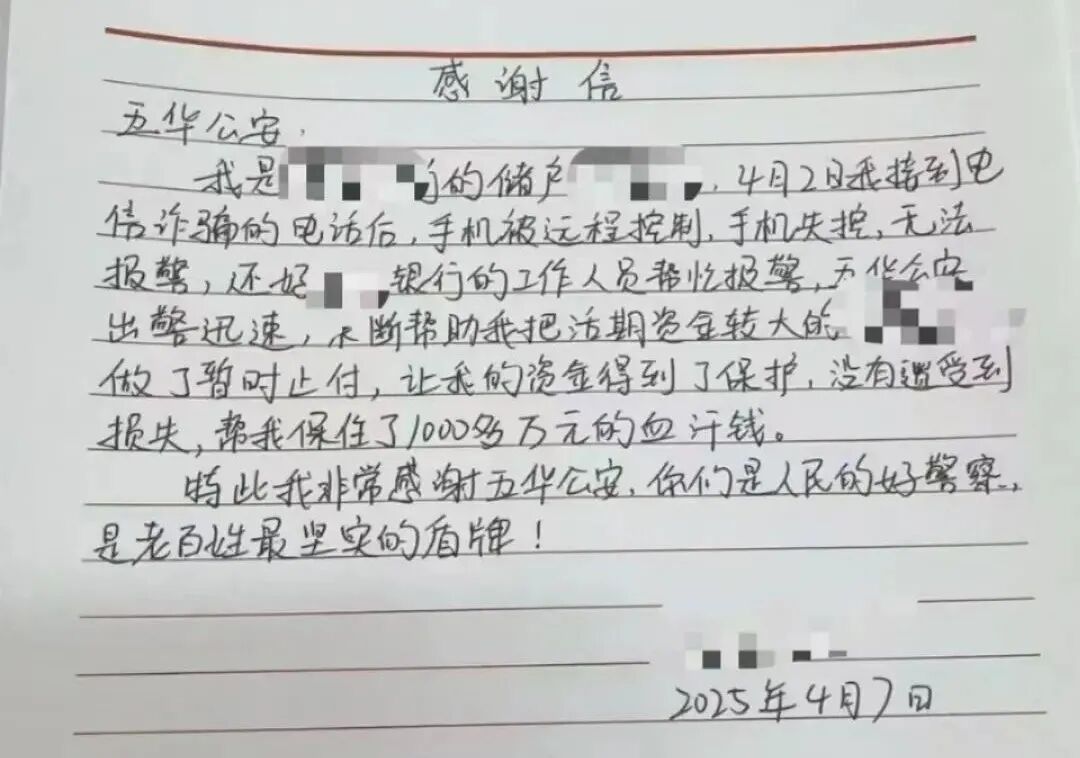 感谢信
五华公安,
我是 的储户 ,4月2日我接到电
信诈骗的电话后,手机被远程控制,手机失控,无法
报警,还好 银行的工作人员帮忙报警,五华公安
出警迅速,不断帮助我把活期资金较大的
做了暂时止付,让我的资金得到了保护,没有遭受到
损失,帮我保住了1000多万元的血汗钱。
特此我非常感谢五华公安,你们是人民的好警察,
是老百姓最坚实的盾牌!
2025年4月7日